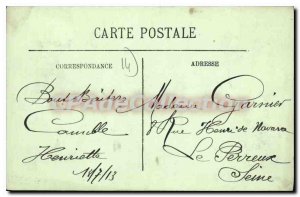 CARTE POSTALE
CORRESPONDANCE
ADRESSE
14
Bons Baisers
Camille
Henriette
19/7/13
Madame Garnier
8 Rue Henri de Navarre
Le Perreux
Seine